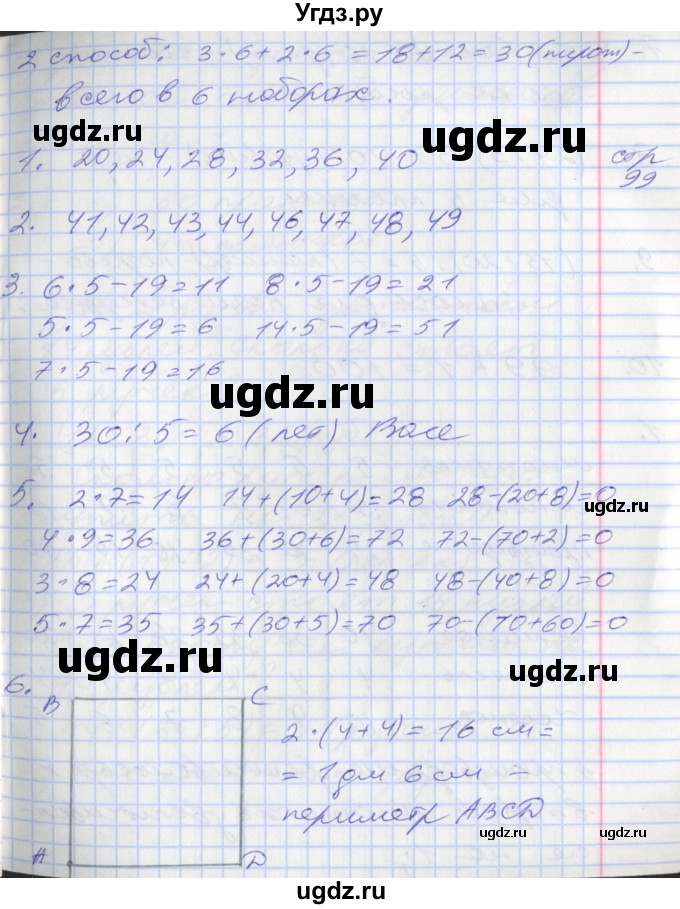 Угдз.ру
2 способ: 3·6+2·6 = 18+12=30(пирож)-
всего в 6 наборах.
ugdz.ru ugdz.ru
1. 20, 24, 28, 32, 36, 40 стр 99
2. 41, 42, 43, 44, 46, 47, 48, 49
3. 6·5-19=11 8·5-19=21
5·5-19=6 14·5-19=51
7·5-19=16
ugdz.ru ugdz.ru
4. 30:5=6(лет) Васе
5. 2·7=14 14+(10+4)=28 28-(20+8)=0
ugdz.ru
4·9=36 36+(30+6)=72 72-(70+2)=0
3·8=24 24+(20+4)=48 48-(40+8)=0
5·7=35 35+(30+5)=70 70-(10+60)=0
ugdz.ru ugdz.ru
6. B C
2·(4+4)= 16 см=
= 1дм 6см -
периметр ABCD
ugdz.ru
A D
ugdz.ru